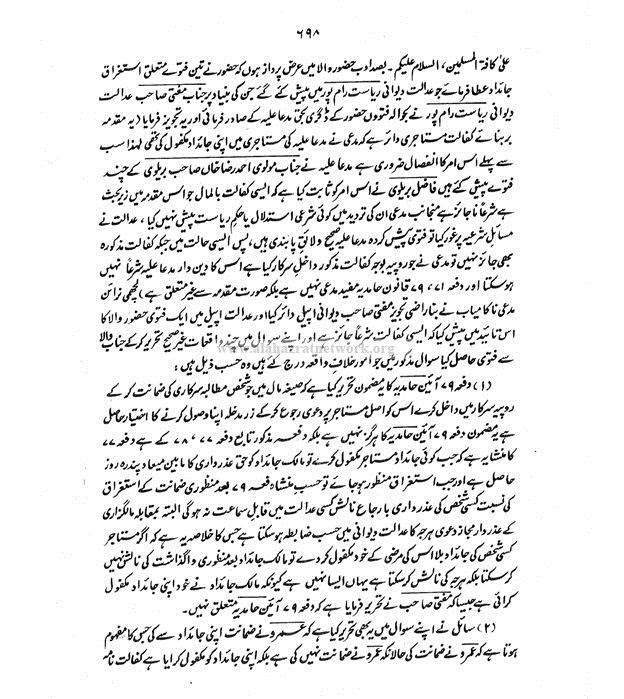 ۶۹۸
علٰی کافۃ المسلمین، السلام علیکم۔ بصد ادب حضور والا میں عرض پرداز ہوں کہ حضور نے تین فتوے متعلق استغراق
جائداد عطا فرمائے جو عدالت دیوانی ریاست رام پور میں پیش کئے گئے جن کی بنیاد پر جناب مفتی صاحب عدالت
دیوانی ریاست رام پور نے بحوالہ فتووں حضور کے ڈگری بحق مدعا علیہ کے صادر فرمائی اور یہ تجویز فرمایا (یہ مقدمہ
بربنائے کفالت مستاجری دائر ہے کہ مدعی نے مدعا علیہ کی مستاجری میں اپنی جائداد مکفول کی تھی لہذا سب
سے پہلے اس امر کا انفصال ضروری ہے مدعا علیہ نے جناب مولوی احمد رضا خاں صاحب بریلوی کے چند
فتوے پیش کئے ہیں فاضل بریلوی نے اس امر کو ثابت کیا ہے کہ ایسی کفالت بالمال جو اس مقدمہ میں زیر بحث
ہے شرعاً ناجائز ہے منجانب مدعی ان کی تردید میں کوئی شرعی استدلال یا حکم ریاست پیش نہیں کیا، عدالت نے
مسائل شرعیہ پر غور کیا تو فتوی پیش کردہ مدعا علیہ صحیح و لائق پابندی ہیں، پس ایسی حالت میں جبکہ کفالت مذکورہ
بھی جائز نہیں تو مدعی نے جو روپیہ بوجہ کفالت مذکور داخل سرکار کیا ہے اس کا دین دار مدعا علیہ شرعاً نہیں
ہوسکتا اور دفعہ ۷۱، ۷۹ قانون حامدیہ مفید مدعی نہیں ہے بلکہ صورت مقدمہ سے غیر متعلق ہے) لچھمی نرائن
مدعی ناکامیاب نے بناراضی تجویز مفتی صاحب دیوانی اپیل دائر کیا اور عدالت اپیل میں ایک فتوی حضور والا کا
اس تائید میں پیش کیا کہ ایسی کفالت شرعاً جائز ہے اور اپنے سوال میں چند واقعات غیر صحیح تحریر کر کے جناب والا
www.alahazratnetwork.org
سے فتوی حاصل کیا سوال مذکور میں جو امور خلاف واقعہ درج کئے ہیں وہ حسب ذیل ہیں:
(۱) دفعہ ۷۹ آئین حامدیہ کا یہ مضمون تحریر کیا ہے کہ صیغہ مال میں جو شخص مطالبہ سرکاری کی ضمانت کر کے
روپیہ سرکار میں داخل کرے اس کو اصل مستاجر پر دعوی رجوع کر کے زر مدخلہ اپنا وصول کرنے کا اختیار حاصل
ہے یہ مضمون دفعہ ۷۹ آئین حامدیہ کا ہرگز نہیں ہے بلکہ دفعہ مذکور تابع دفعہ ۷۷، ۷۸ کے ہے دفعہ ۷۷
کا منشا یہ ہے کہ جب کوئی جائداد مستاجر مکفول کرے تو مالک جائداد کو حق عذر داری کا مابین میعاد پندرہ روز
حاصل ہے اور جب استغراق منظور ہو جائے تو حسب منشاء دفعہ ۷۹ بعد منظوری ضمانت کے استغراق
کی نسبت کسی شخص کی عذر داری یا رجاع نالش کسی عدالت میں قابل سماعت نہ ہوگی البتہ بمقابلہ مالگزاری
کے عذردار مجاز دعوی ہرجہ کا عدالت دیوانی میں حسب ضابطہ ہوسکتا ہے جس کا خلاصہ یہ ہے کہ اگر مستاجر
کسی شخص کی جائداد بلا اس کی مرضی کے خود مکفول کر دے تو مالک جائداد بعد منظوری واگذاشت کی نالش نہیں
کرسکتا بلکہ ہرجہ کی نالش کرسکتا ہے یہاں ایسا نہیں ہے کیونکہ مالک جائداد نے خود اپنی جائداد مکفول
کرائی ہے جیسا کہ مفتی صاحب نے تحریر فرمایا ہے کہ دفعہ ۷۹ آئین حامدیہ متعلق نہیں۔
(۲) سائل نے اپنے سوال میں یہ بھی تحریر کیا ہے کہ عمرو نے ضمانت اپنی جائداد سے کی جس کا مفہوم
ہوتا ہے کہ عمرو نے ضمانت کی حالانکہ عمرو نے ضمانت نہیں کی ہے بلکہ اپنی جائداد کو مکفول کرایا ہے کفالت نامہ